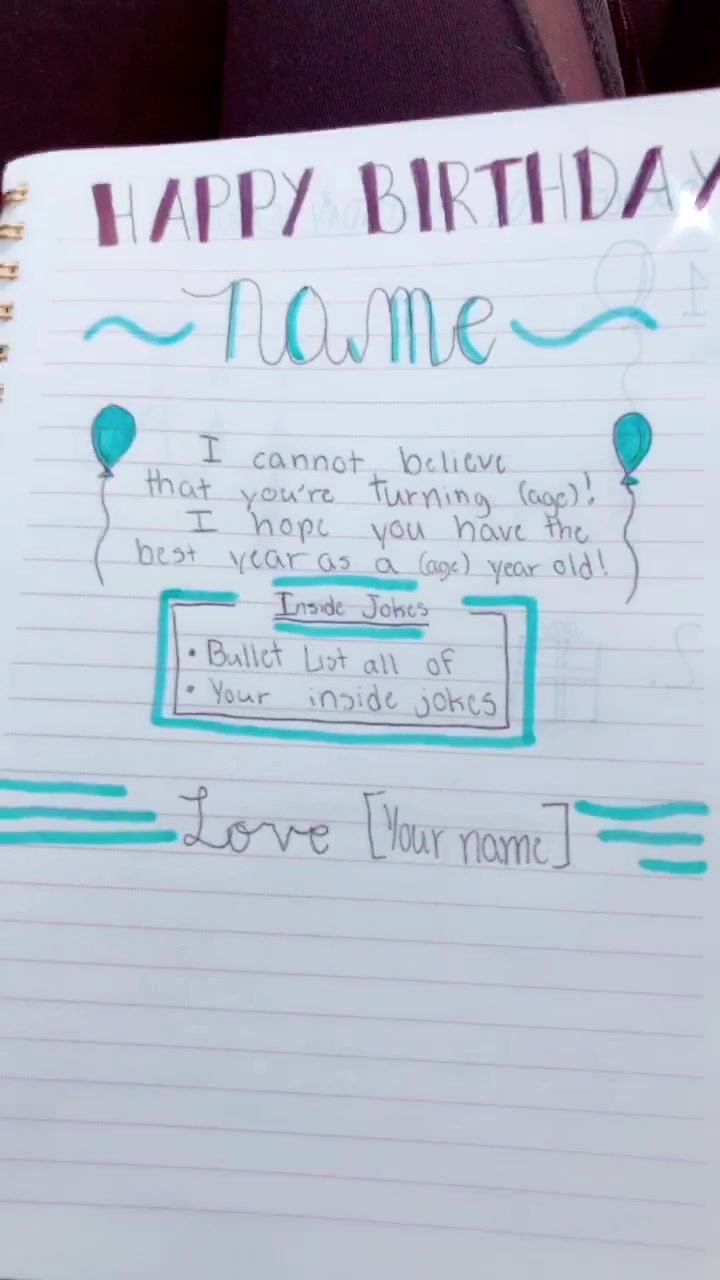 HAPPY BIRTHDAY
name
I cannot believe
that you're turning (age)!
I hope you have the
best year as a (age) year old!
Inside Jokes
• Bullet List all of
• Your inside jokes
Love [Your name]
1
2.